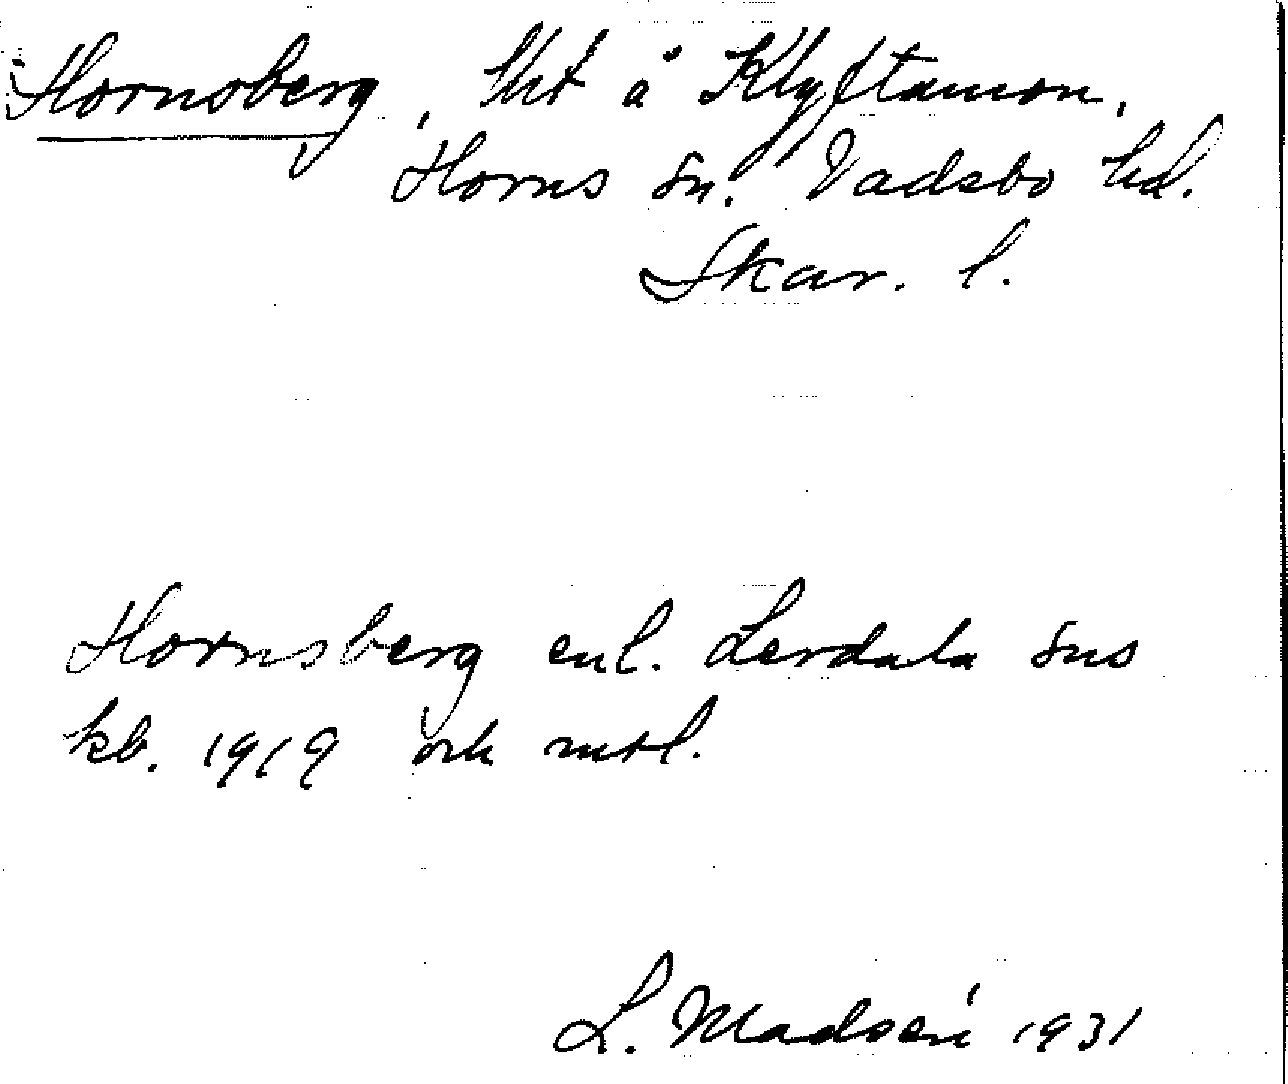 Hornsberg, lht å Klyftamon,
Horns sn. Vadsbo hd.
Skar. l.
Hornsberg enl. Lerdala sns
kb. 1919 och mtl.
L. Madsén 1931